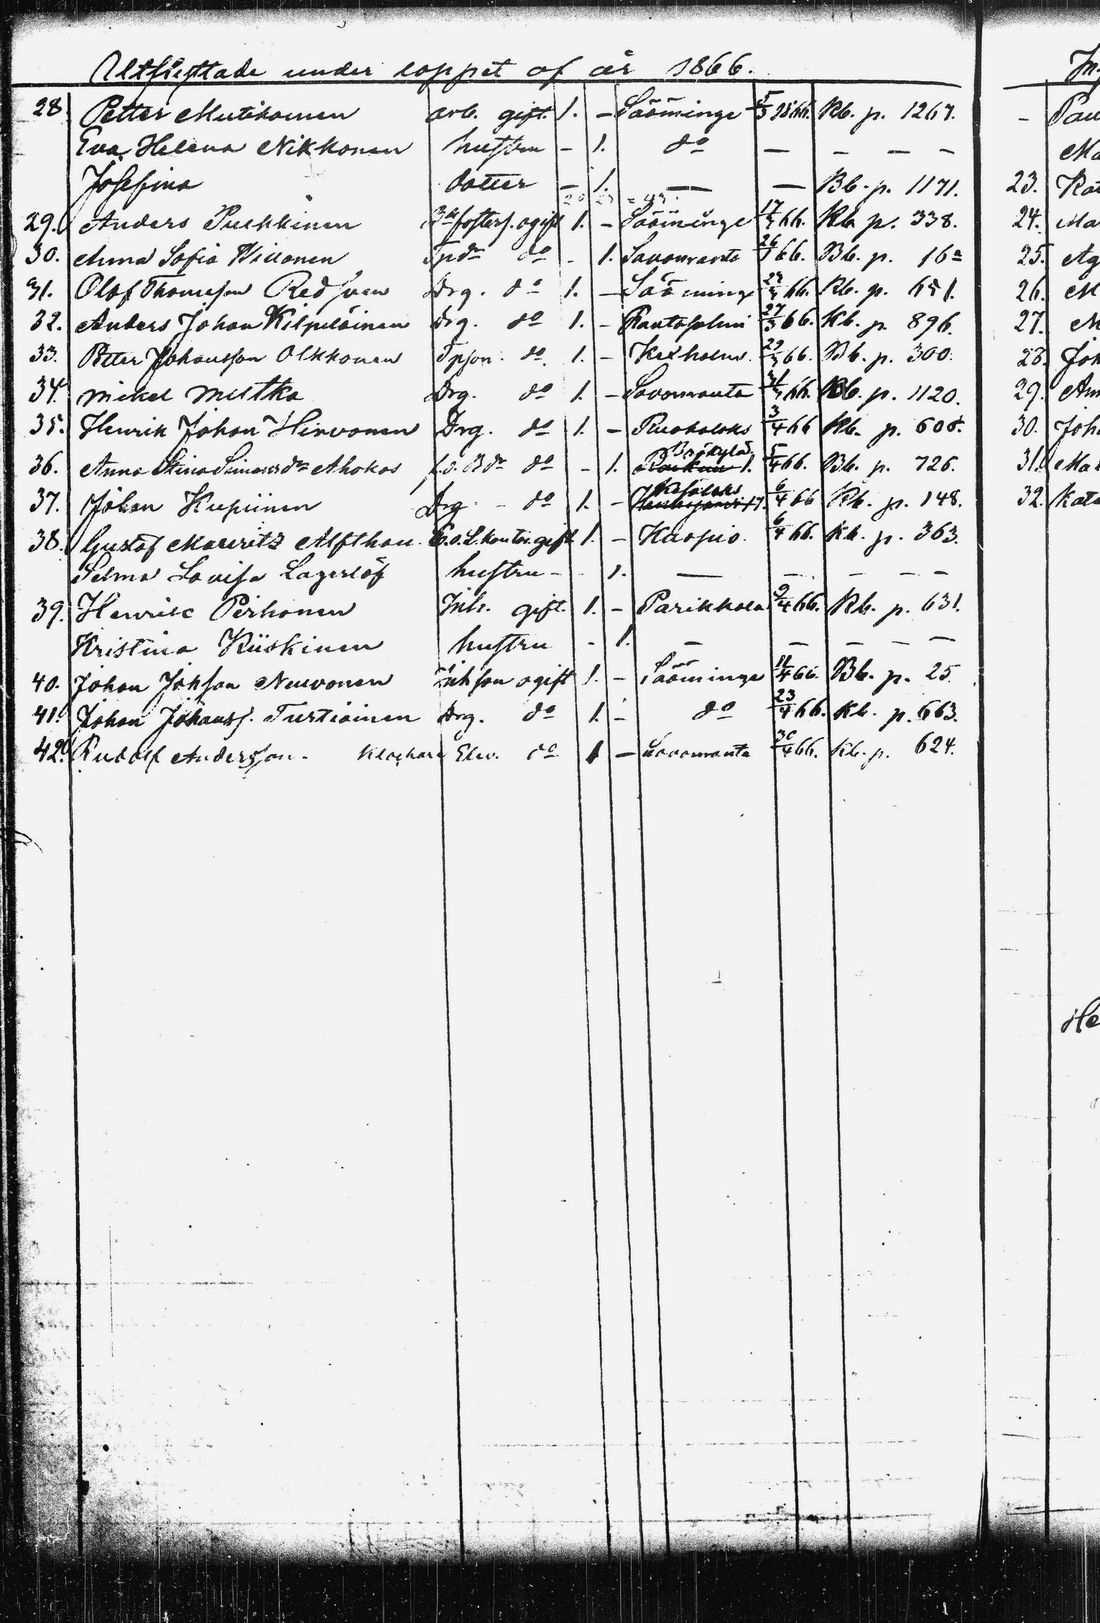 Utflyttade under loppet af år 1866.
28 Petter Mutikainen arb. gift. 1. – Sääminge 5/3 1866. Kb. p. 1267.
Eva Helena Nikkonen hustru – 1. do – – – –
Josefina dotter – 1. – – Bb. p. 1171.
29. Anders Pulkkinen fosters. ogift 1. – Sääminge 17/3 66. Kb. p. 338.
30. Anna Sofia do - 1. Savonranta 66. Bb. p. 16
31. Olof Thomasson Redsven Drg. do 1. – Sääminge 66. Kb. p. 651.
32. Anders Johan Kilpeläinen Drg. do 1. – Rantasalmi 27/3 66. Kb. p. 896.
33. Petter Johansson Olkkonen Tpson. do. 1. – Kexholm. 29/3 66. Bb. p. 300.
34. Mikel Miettka Drg. do 1. – Savonranta 66. Bb. p. 1120.
35. Henrik Johan Hirvonen Drg. do 1. – Ruokolaks 3/4 66 Kb. p. 605.
36. Anna Stina Simonsdr Ahokas do - 1. Bräkylä 5/4 66. Bb. p. 726.
37. Johan Kupiinen Drg. - do 1. – Kesälaks 6/4 66 Kb. p. 148.
38. Gustaf Mauritz Alfthan gift 1. – Kuopio. 6/4 66. Kb. p. 363.
Selma Lovisa Lagerlöf hustru - 1. – – – – –
39. Henric Pirhonen Inh. gift. 1. – Parikkala 9/4 66. Kb. p. 631.
Kristina Kiiskinen hustru - 1. – – – – –
40. Johan Johsson Neuvonen Inhson ogift 1. – Sääminge 11/4 66. Bb. p. 25.
41. Johan Johanss. Turtiainen Drg. do 1. – do 23/4 66. Kb. p. 663.
42. Rudolf Andersson. Klockare Elev. do 1 – Savonranta 30/4 66. Kb. p. 624.
23.
24.
25.
26.
27.
28.
29.
30.
31.
32.